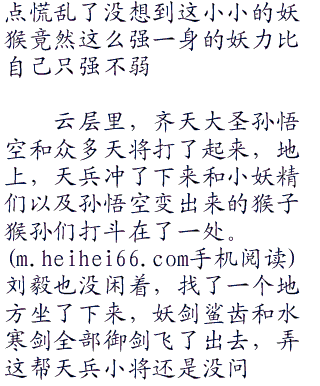 点慌乱了没想到这小小的妖
猴竟然这么强一身的妖力比
自己只强不弱
云层里，齐天大圣孙悟
空和众多天将打了起来，地
上，天兵冲了下来和小妖精
们以及孙悟空变出来的猴子
猴孙们打斗在了一处。
(m.heihei66.com手机阅读)
刘毅也没闲着，找了一个地
方坐了下来，妖剑鲨齿和水
寒剑全部御剑飞了出去，弄
这帮天兵小将还是没问